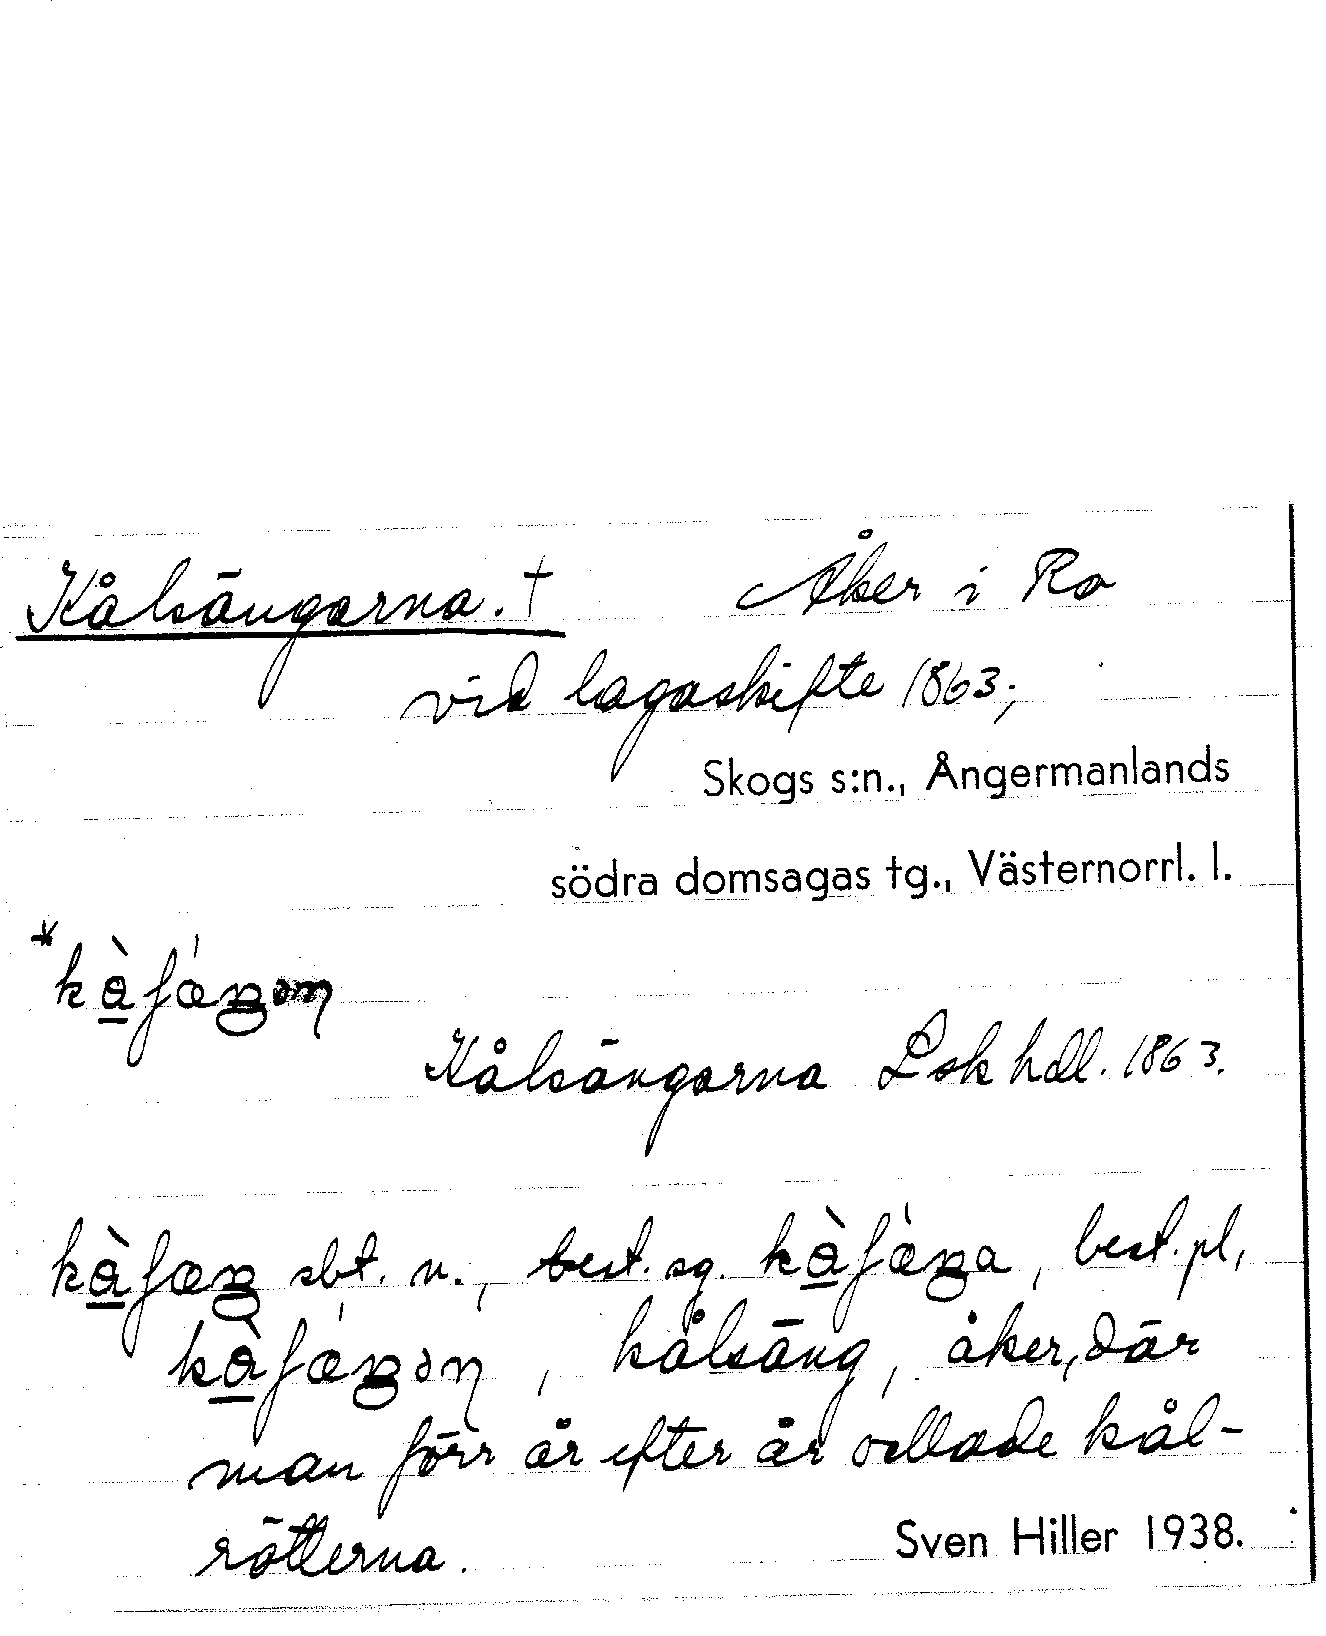 Kålsängarna. † Åker i Ro
vid lagaskifte 1863;
Skogs s:n., Ångermanlands
södra domsagas tg., Västernorrl. l.
Kålsängarna Lsk hdl. 1863.
sbt. n., best. sg. , best. pl.,
, kålsäng, åker, där
man förr år efter år odlade kål-
rötterna.
Sven Hiller 1938.